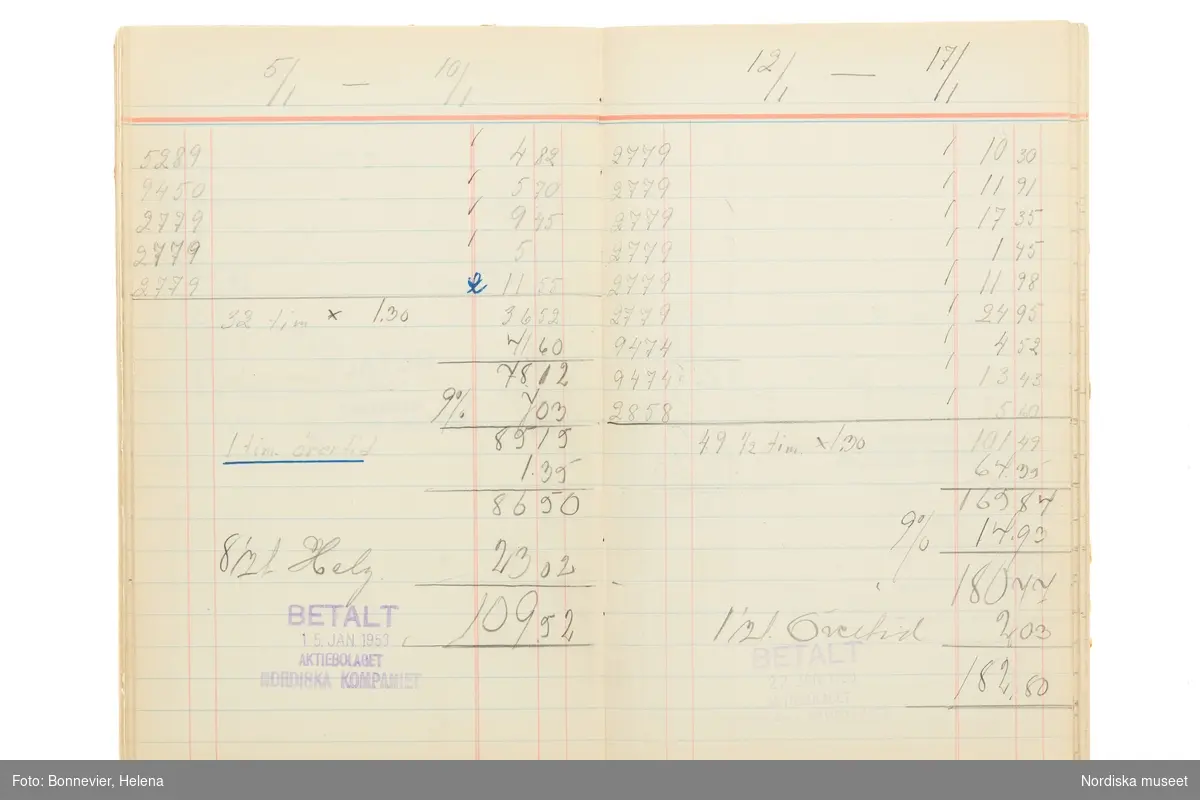 5/1 — 10/1
5289 / 4 82
9450 / 5 70
2779 / 9 45
2779 / 5
2779 2 11 55
32 tim × 1.30 36 52
41 60
78.12
9% 7 03
85 15
1 tim. övertid 1.35
86 50
8 1/2 t Helg. 23 02
109.52
BETALT
15. JAN. 1953
AKTIEBOLAGET
NORDISKA KOMPANIET
12/1 — 17/1
2779 / 10 30
2779 / 11 91
2779 / 17 35
2779 / 1 45
2779 / 11 98
2779 / 24 95
9474 / 4 52
9474 / 13 43
2858 / 5 60
49 1/2 tim. × 1.30 101 49
64.35
165 84
9% 14.93
180 77
1 1/2 t. Övertid 2 03
182.80
BETALT
Foto: Bonnevier, Helena
Nordiska museet